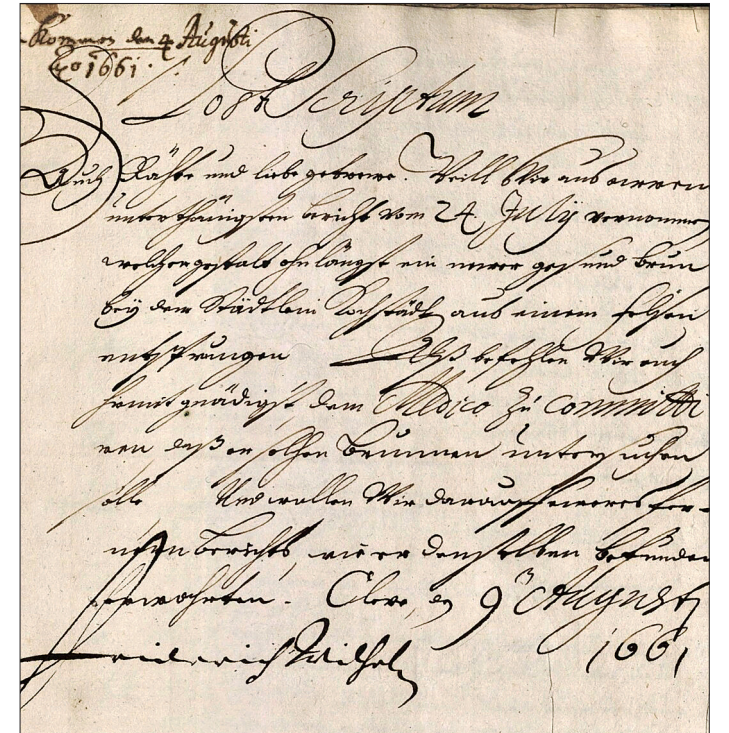 kommen den 4 Augusti
Ao 1661.
Post Scriptum
Auch Rähte und liebe getrewe. Weill Wir aus ewren
unterthänigsten bericht vom 24 July vernommen,
welchergestalt ohnlängst ein newer gesund brun
bey dem Städtlein Kochstädt aus einem felsen
entsprungen Alß befehlen Wir euch
hirmit gnädigst, dem Medico zu committi
ren daß er solchen Brunnen untersuchen
solle Und wollen Wir darauff eweres fer-
nern berichts, wie er denselben befunden
erwahrten. Cleve, den 9 August
1661
Friderich Wilhelm